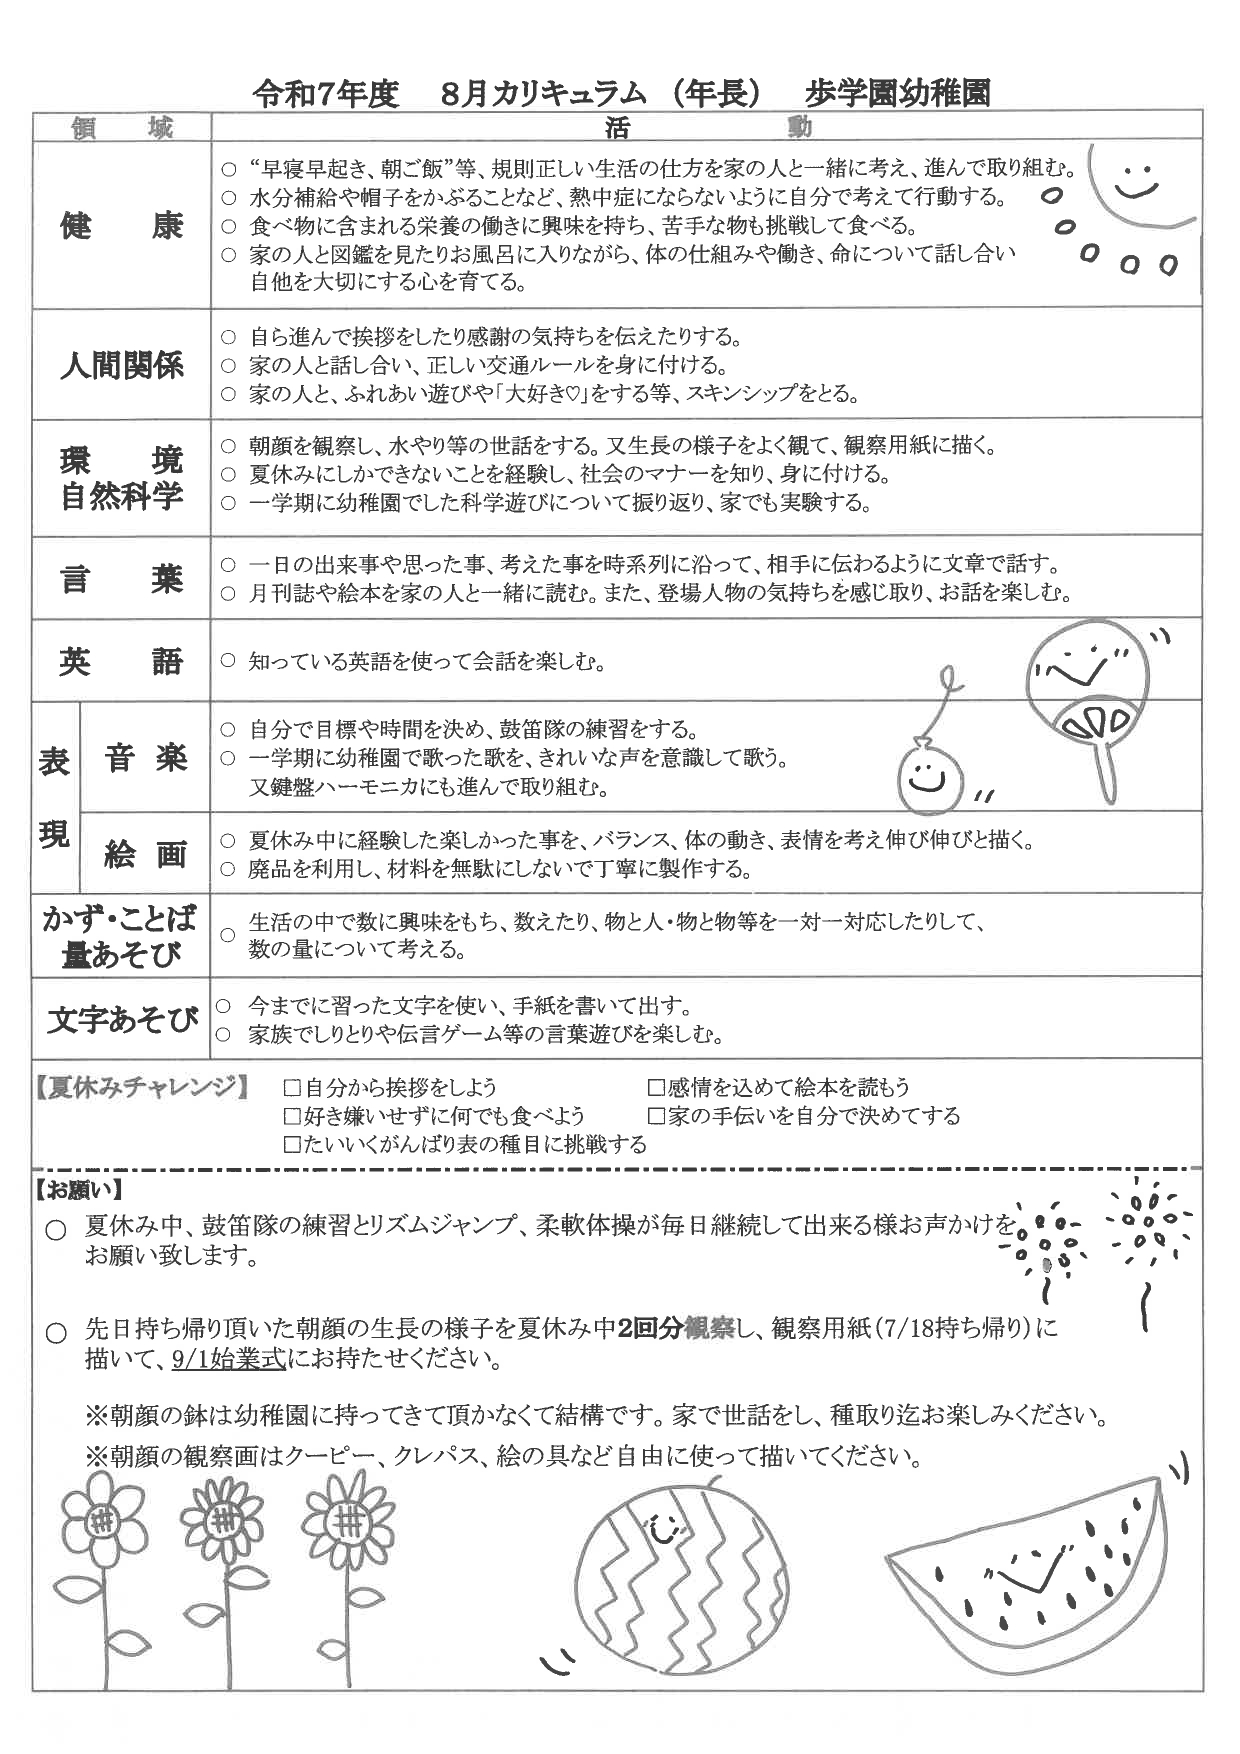 令和7年度　8月カリキュラム（年長）　歩学園幼稚園
領　域　活　動
健　康
○ “早寝早起き、朝ご飯”等、規則正しい生活の仕方を家の人と一緒に考え、進んで取り組む。
○ 水分補給や帽子をかぶることなど、熱中症にならないように自分で考えて行動する。
○ 食べ物に含まれる栄養の働きに興味を持ち、苦手な物も挑戦して食べる。
○ 家の人と図鑑を見たりお風呂に入りながら、体の仕組みや働き、命について話し合い
自他を大切にする心を育てる。
人間関係
○ 自ら進んで挨拶をしたり感謝の気持ちを伝えたりする。
○ 家の人と話し合い、正しい交通ルールを身に付ける。
○ 家の人と、ふれあい遊びや「大好き♡」をする等、スキンシップをとる。
環　境
自然科学
○ 朝顔を観察し、水やり等の世話をする。又生長の様子をよく観て、観察用紙に描く。
○ 夏休みにしかできないことを経験し、社会のマナーを知り、身に付ける。
○ 一学期に幼稚園でした科学遊びについて振り返り、家でも実験する。
言　葉
○ 一日の出来事や思った事、考えた事を時系列に沿って、相手に伝わるように文章で話す。
○ 月刊誌や絵本を家の人と一緒に読む。また、登場人物の気持ちを感じ取り、お話を楽しむ。
英　語
○ 知っている英語を使って会話を楽しむ。
表現
音 楽
○ 自分で目標や時間を決め、鼓笛隊の練習をする。
○ 一学期に幼稚園で歌った歌を、きれいな声を意識して歌う。
又鍵盤ハーモニカにも進んで取り組む。
絵 画
○ 夏休み中に経験した楽しかった事を、バランス、体の動き、表情を考え伸び伸びと描く。
○ 廃品を利用し、材料を無駄にしないで丁寧に製作する。
かず・ことば
量あそび
○ 生活の中で数に興味をもち、数えたり、物と人・物と物等を一対一対応したりして、
数の量について考える。
文字あそび
○ 今までに習った文字を使い、手紙を書いて出す。
○ 家族でしりとりや伝言ゲーム等の言葉遊びを楽しむ。
【夏休みチャレンジ】　□自分から挨拶をしよう　□感情を込めて絵本を読もう
□好き嫌いせずに何でも食べよう　□家の手伝いを自分で決めてする
□たいいくがんばり表の種目に挑戦する
【お願い】
○ 夏休み中、鼓笛隊の練習とリズムジャンプ、柔軟体操が毎日継続して出来る様お声かけを
お願い致します。
○ 先日持ち帰り頂いた朝顔の生長の様子を夏休み中2回分観察し、観察用紙（7/18持ち帰り）に
描いて、9/1始業式にお持たせください。
※朝顔の鉢は幼稚園に持ってきて頂かなくて結構です。家で世話をし、種取り迄お楽しみください。
※朝顔の観察画はクーピー、クレパス、絵の具など自由に使って描いてください。